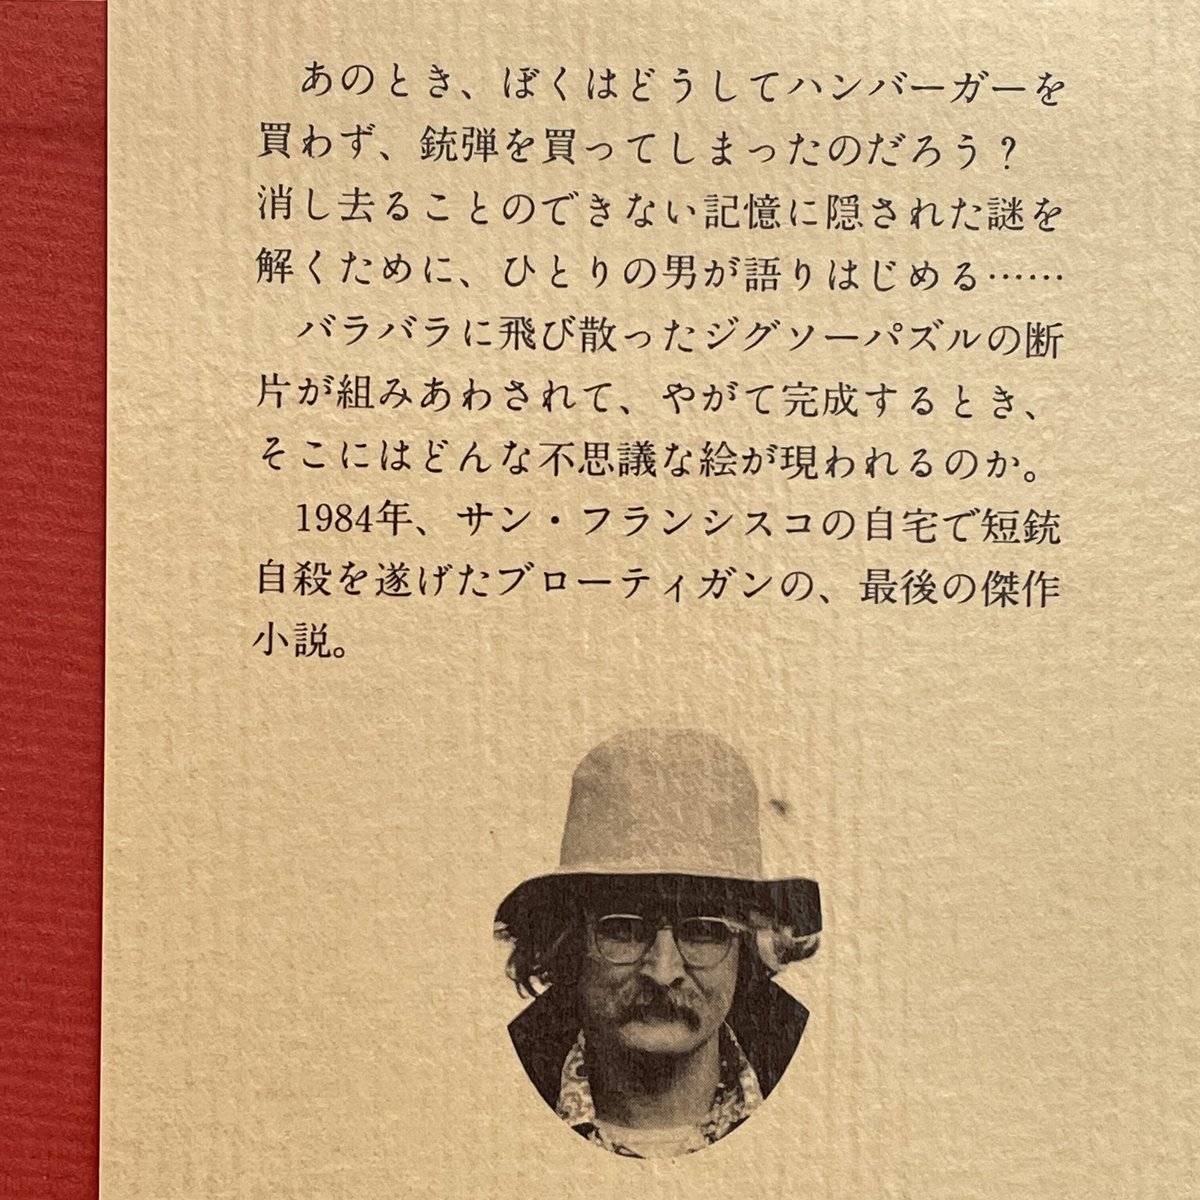 あのとき、ぼくはどうしてハンバーガーを
買わず、銃弾を買ってしまったのだろう？
消し去ることのできない記憶に隠された謎を
解くために、ひとりの男が語りはじめる……
バラバラに飛び散ったジグソーパズルの断
片が組みあわされて、やがて完成するとき、
そこにはどんな不思議な絵が現われるのか。
1984年、サン・フランシスコの自宅で短銃
自殺を遂げたブローティガンの、最後の傑作
小説。